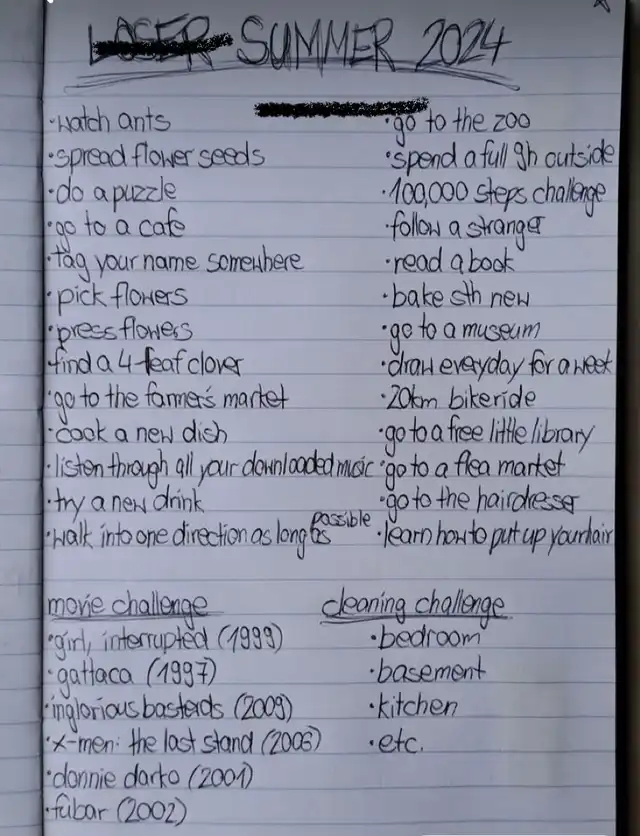 LOSER SUMMER 2024
·watch ants
·spread flower seeds
·do a puzzle
·go to a cafe
·tag your name somewhere
·pick flowers
·press flowers
·find a 4-leaf clover
·go to the farmer's market
·cook a new dish
·listen through all your downloaded music
·try a new drink
·walk into one direction as long as possible
·go to the zoo
·spend a full 9h outside
·100,000 steps challenge
·follow a stranger
·read a book
·bake sth new
·go to a museum
·draw everyday for a week
·20km bikeride
·go to a free little library
·go to a flea market
·go to the hairdresser
·learn how to put up your hair
movie challenge
·girl, interrupted (1999)
·gattaca (1997)
·inglorious basterds (2009)
·x-men: the last stand (2006)
·donnie darko (2001)
·fubar (2002)
cleaning challenge
·bedroom
·basement
·kitchen
·etc.